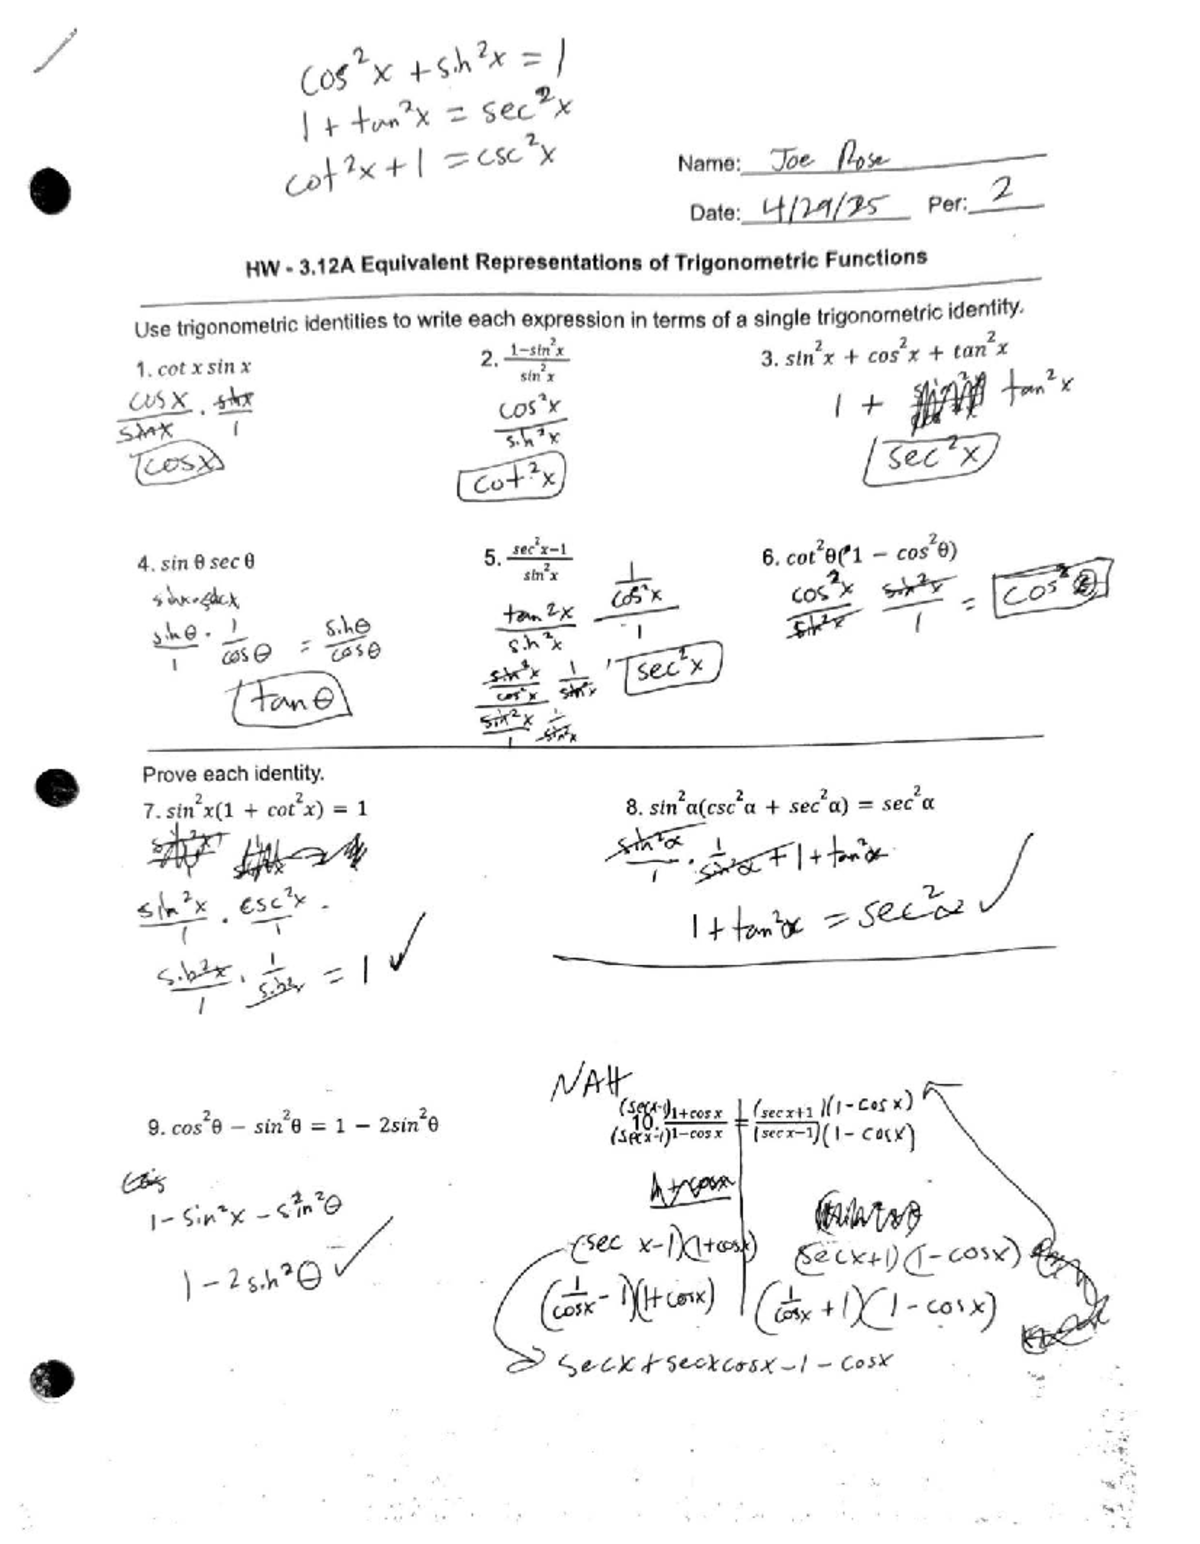 cos²x + sin²x = 1
1 + tan²x = sec²x
cot²x + 1 = csc²x
Name: Joe Rose
Date: 4/29/25 Per: 2
HW - 3.12A Equivalent Representations of Trigonometric Functions
Use trigonometric identities to write each expression in terms of a single trigonometric identity.
1. cot x sin x
cosx/sinx · sinx/1
cosx
2. (1−sin²x)/(sin²x)
cos²x/sin²x
cot²x
3. sin²x + cos²x + tan²x
1 + tan²x
sec²x
4. sin θ sec θ
sinx·secx
sinθ/1 · 1/cosθ = sinθ/cosθ
tanθ
5. (sec²x−1)/(sin²x)
tan²x/sin²x
sin²x/cos²x · 1/sin²x
sin²x/1 · 1/sin²x
(1/cos²x)/1
sec²x
6. cot²θ(1 − cos²θ)
cos²x/sin²x · sin²x/1 = cos²θ
Prove each identity.
7. sin²x(1 + cot²x) = 1
sin²x/1 · csc²x/1
sin²x/1 · 1/sin²x = 1 ✓
8. sin²α(csc²α + sec²α) = sec²α
sin²α/1 · 1/sin²α + 1 + tan²α
1 + tan²α = sec²α ✓
9. cos²θ − sin²θ = 1 − 2sin²θ
1 − sin²x − sin²θ
1 − 2sin²θ ✓
NAH
10. (secx-1)1+cos x/(secx-1)1−cos x = (sec x+1)(1-cosx)/(sec x−1)(1-cosx)
1+cosx
(sec x-1)(1+cosx) (secx+1)(1-cosx)
(1/cosx - 1)(1+cosx) (1/cosx + 1)(1-cosx)
secx + secxcosx - 1 - cosx